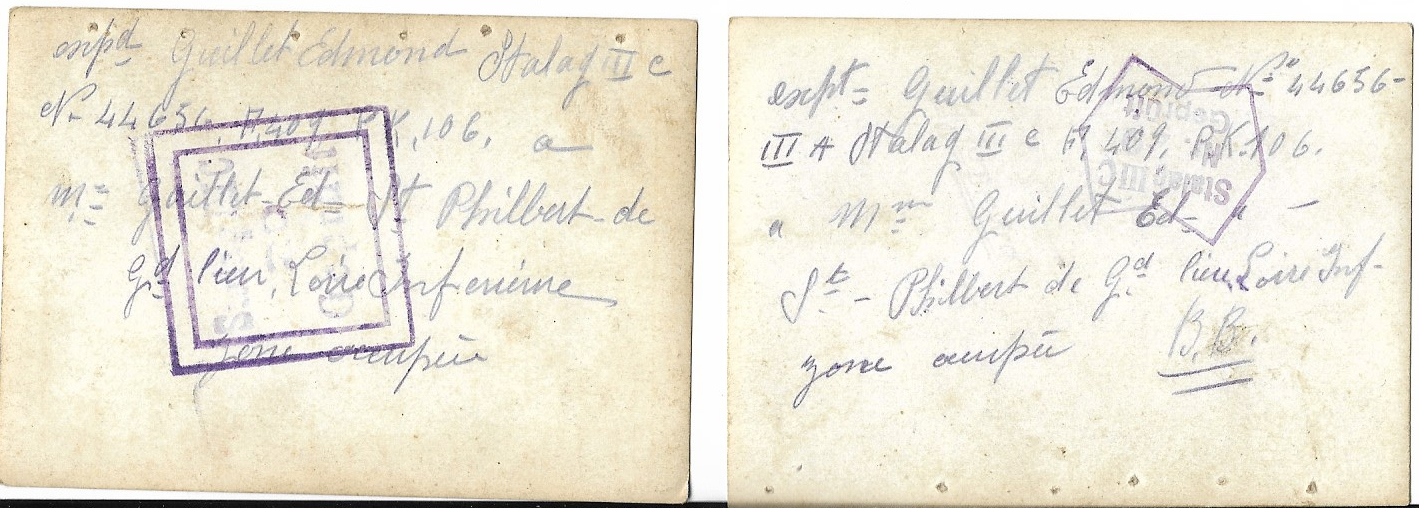 expd Guillet Edmond Stalag III c
No 44656, A,409, P.K,106, a
Mme Guillet Ed St Philbert de
Gd lieu, Loire Inferieure
zone occupée
expt Guillet Edmond No 44656
III A Stalag III c A, 409, P.K.106.
a Mme Guillet Ed a
St Philbert de Gd lieu, Loire Inf
zone occupée
B.B.
Stalag III C
Geprüft